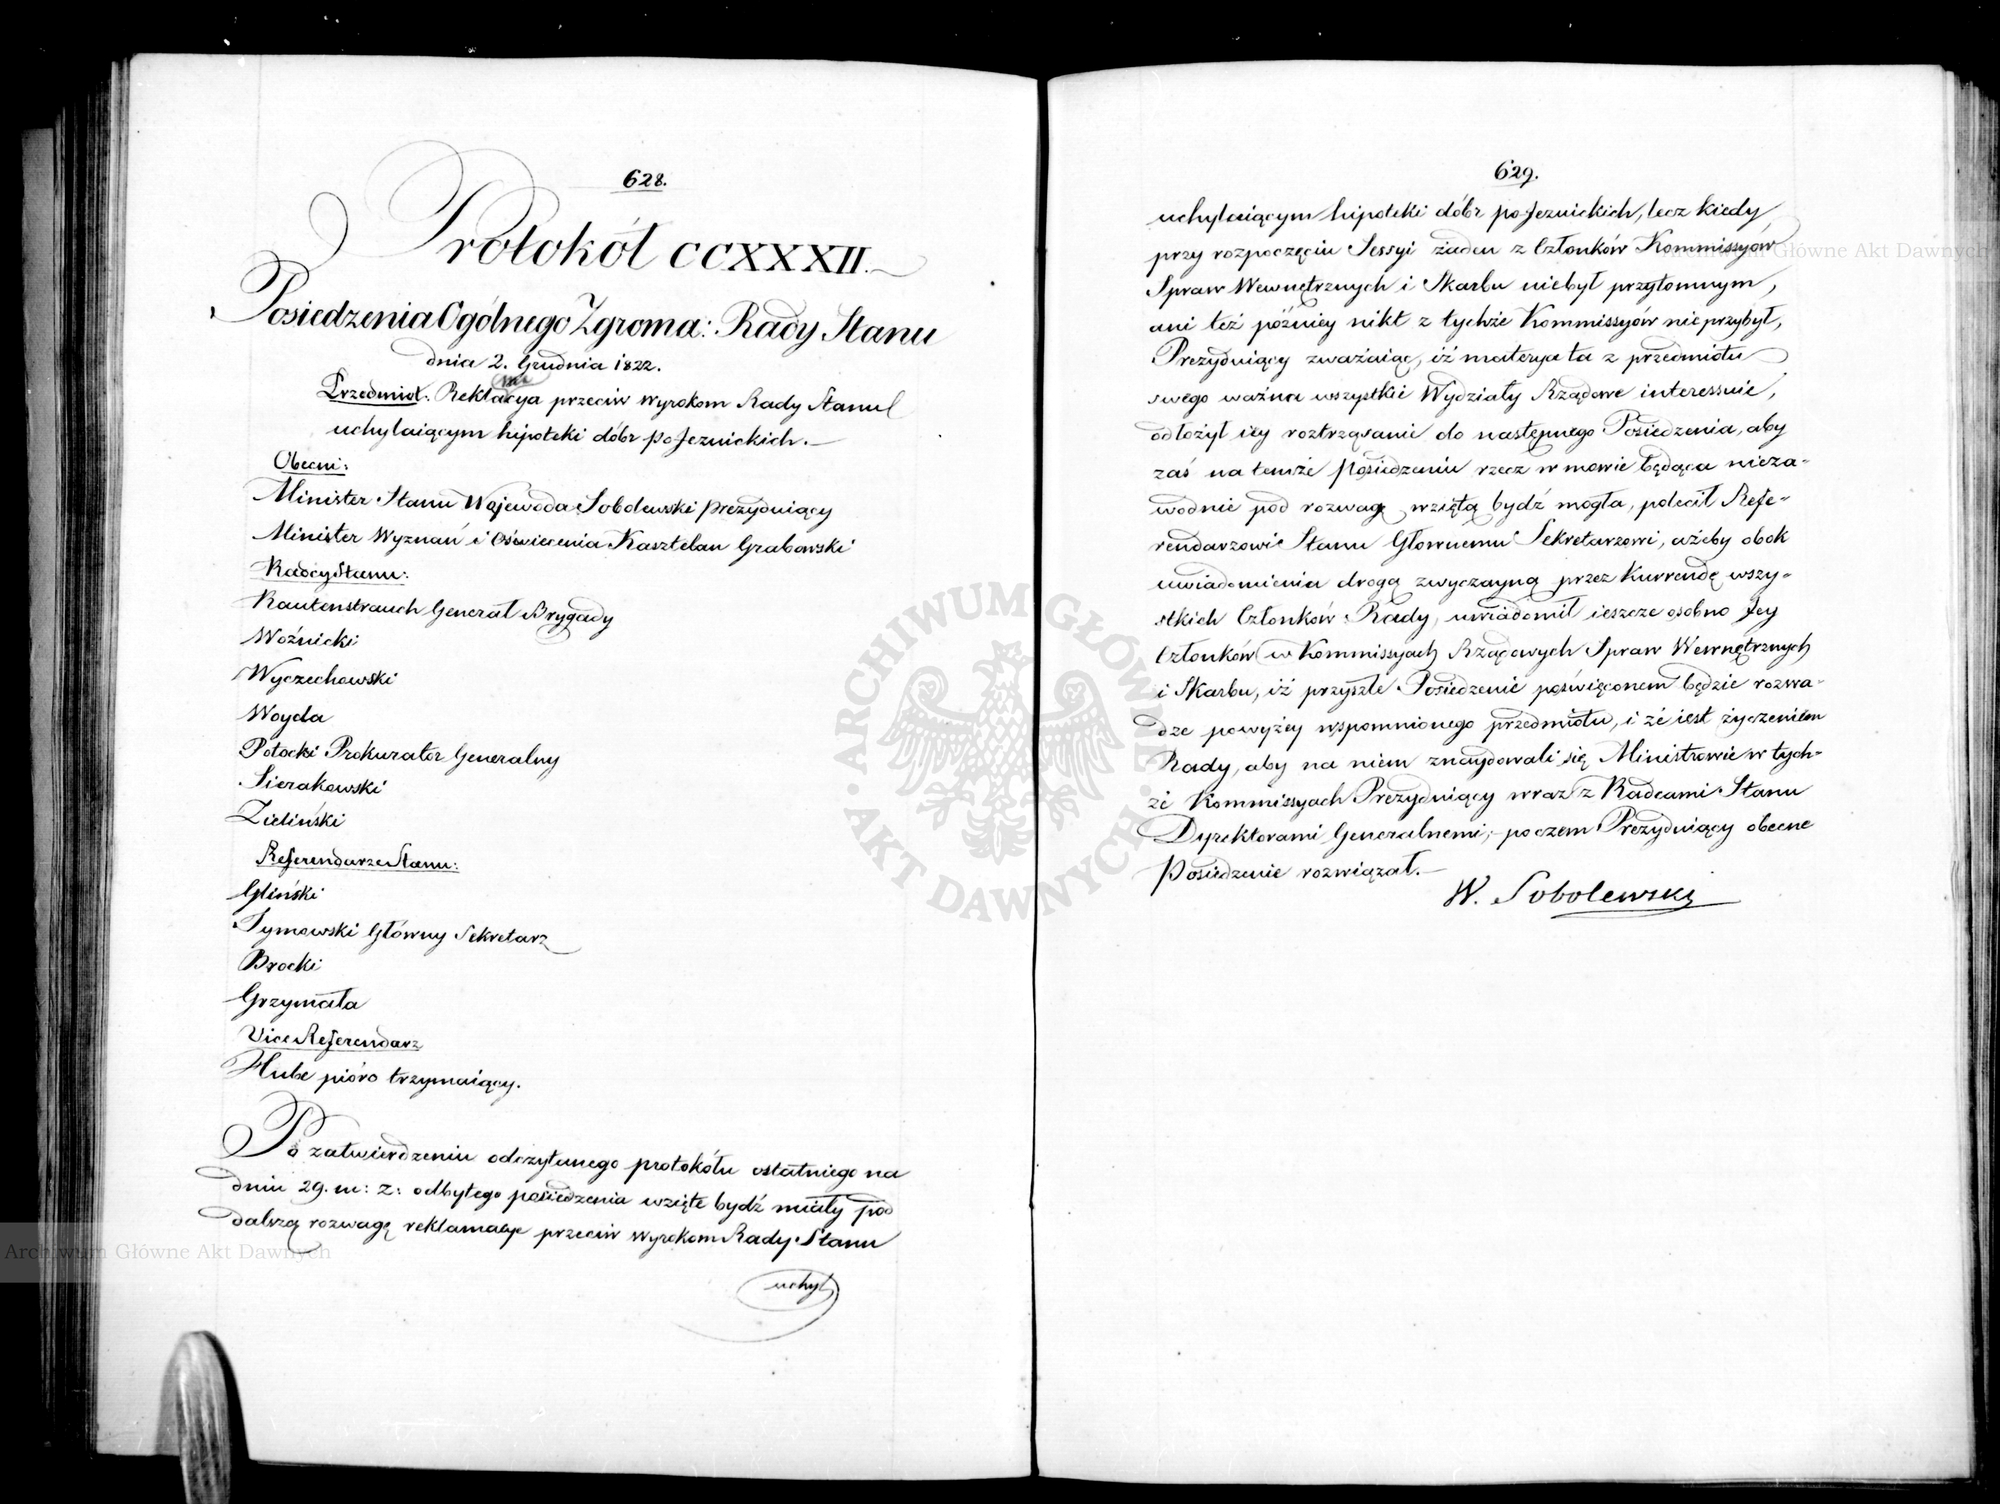 628.
Protokół CCXXXII.
Posiedzenia Ogólnego Zgroma: Rady Stanu
dnia 2. Grudnia 1822.
ma
Przedmiot. Reklacya przeciw wyrokom Rady Stanu
uchylaiącym hipoteki dóbr pojeznickich.—
Obecni:
Minister Stanu Wojewoda Sobolewski prezyduiący
Minister Wyznań i Oświecenia Kasztelan Grabowski
Radcy Stanu:
Rautenstrauch Generał Brygady
Woźnicki
Wyczechowski
Woyda
Potocki Prokurator Generalny
Sierakowski
Zieliński
Referendarze Stanu:
Gliński
Tymowski Główny Sekretarz
Brocki
Grzymała
Vice Referendarz
Hube pióro trzymaiący.
Po zatwierdzeniu odczytanego protokółu ostatniego na
dniu 29. m: z: odbytego posiedzenia wzięte bydź miały pod
dalszą rozwagę reklamacye przeciw wyrokom Rady Stanu
uchyl
629.
uchylaiącym hipoteki dóbr pojeznickich, lecz kiedy
przy rozpoczęciu Sessyi żaden z Członków Kommissyów
Spraw Wewnętrznych i Skarbu niebył przytomnym,
ani też późniey nikt z tychże Kommissyów nie przybył,
Prezyduiący zważaiąc, iż materya ta z przedmiotu
swego ważna wszystkie Wydziały Rządowe interessuie,
odłożył iey roztrząsanie do następnego Posiedzenia, aby
zaś na temże Posiedzeniu rzecz w mowie będąca nieza-
wodnie pod rozwagę wziętą bydź mogła, polecił Refe-
rendarzowi Stanu Głownemu Sekretarzowi, ażeby obok
uwiadomienia drogą zwyczayną przez Kurrendę wszy-
stkich Członków Rady, uwiadomił ieszcze osobno Jey
Członków w Kommissyach Rządowych Spraw Wewnętrznych
i Skarbu, iż przyszłe Posiedzenie poświęconem będzie rozwa-
dze powyżey wspomnionego przedmiotu, i że iest życzeniem
Rady, aby na niem znaydowali się Ministrowie w tych-
że Kommissyach Prezyduiący wraz z Radcami Stanu
Dyrektorami Generalnemi, poczem Prezyduiący obecne
Posiedzenie rozwiązał.—
W. Sobolewski
ARCHIWUM GŁÓWNE AKT DAWNYCH
Archiwum Główne Akt Dawnych
Archiwum Główne Akt Dawnych